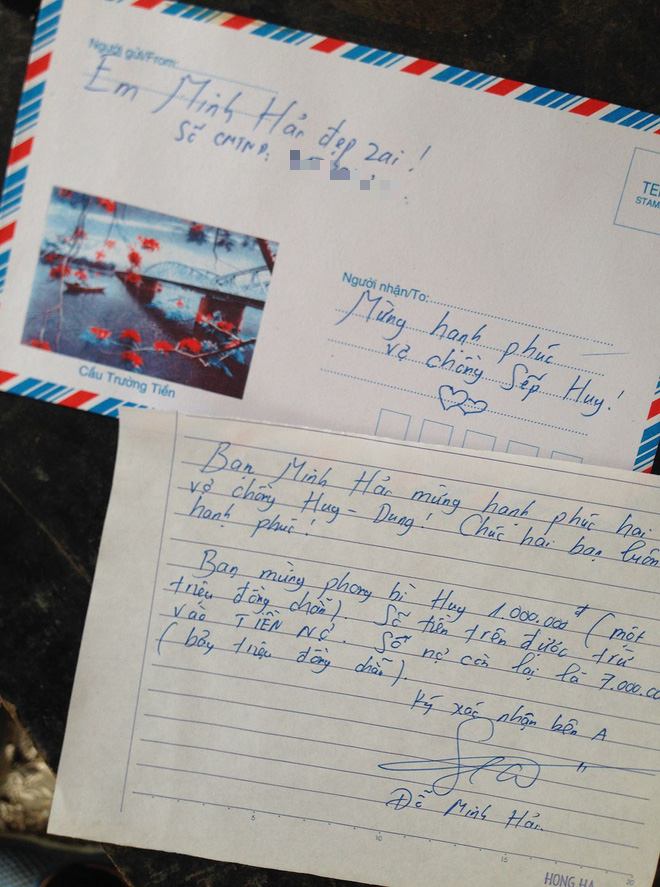 Người gửi/From:
Em Minh Hải đẹp zai!
Số CMTND:
TE
STAM
Người nhận/To:
Mừng hạnh phúc
vợ chồng Sếp Huy!
Cầu Trường Tiền
Bạn Minh Hải mừng hạnh phúc hai
vợ chồng Huy - Dung! Chúc hai bạn luôn
hạnh phúc!
Bạn mừng phong bì Huy 1.000.000đ (một
triệu đồng chẵn). Số tiền trên được trừ
vào TIỀN NỢ. Số nợ còn lại là 7.000.00
(bảy triệu đồng chẵn).
Ký xác nhận bên A
Đỗ Minh Hải
5 10 15 20
HONG HA